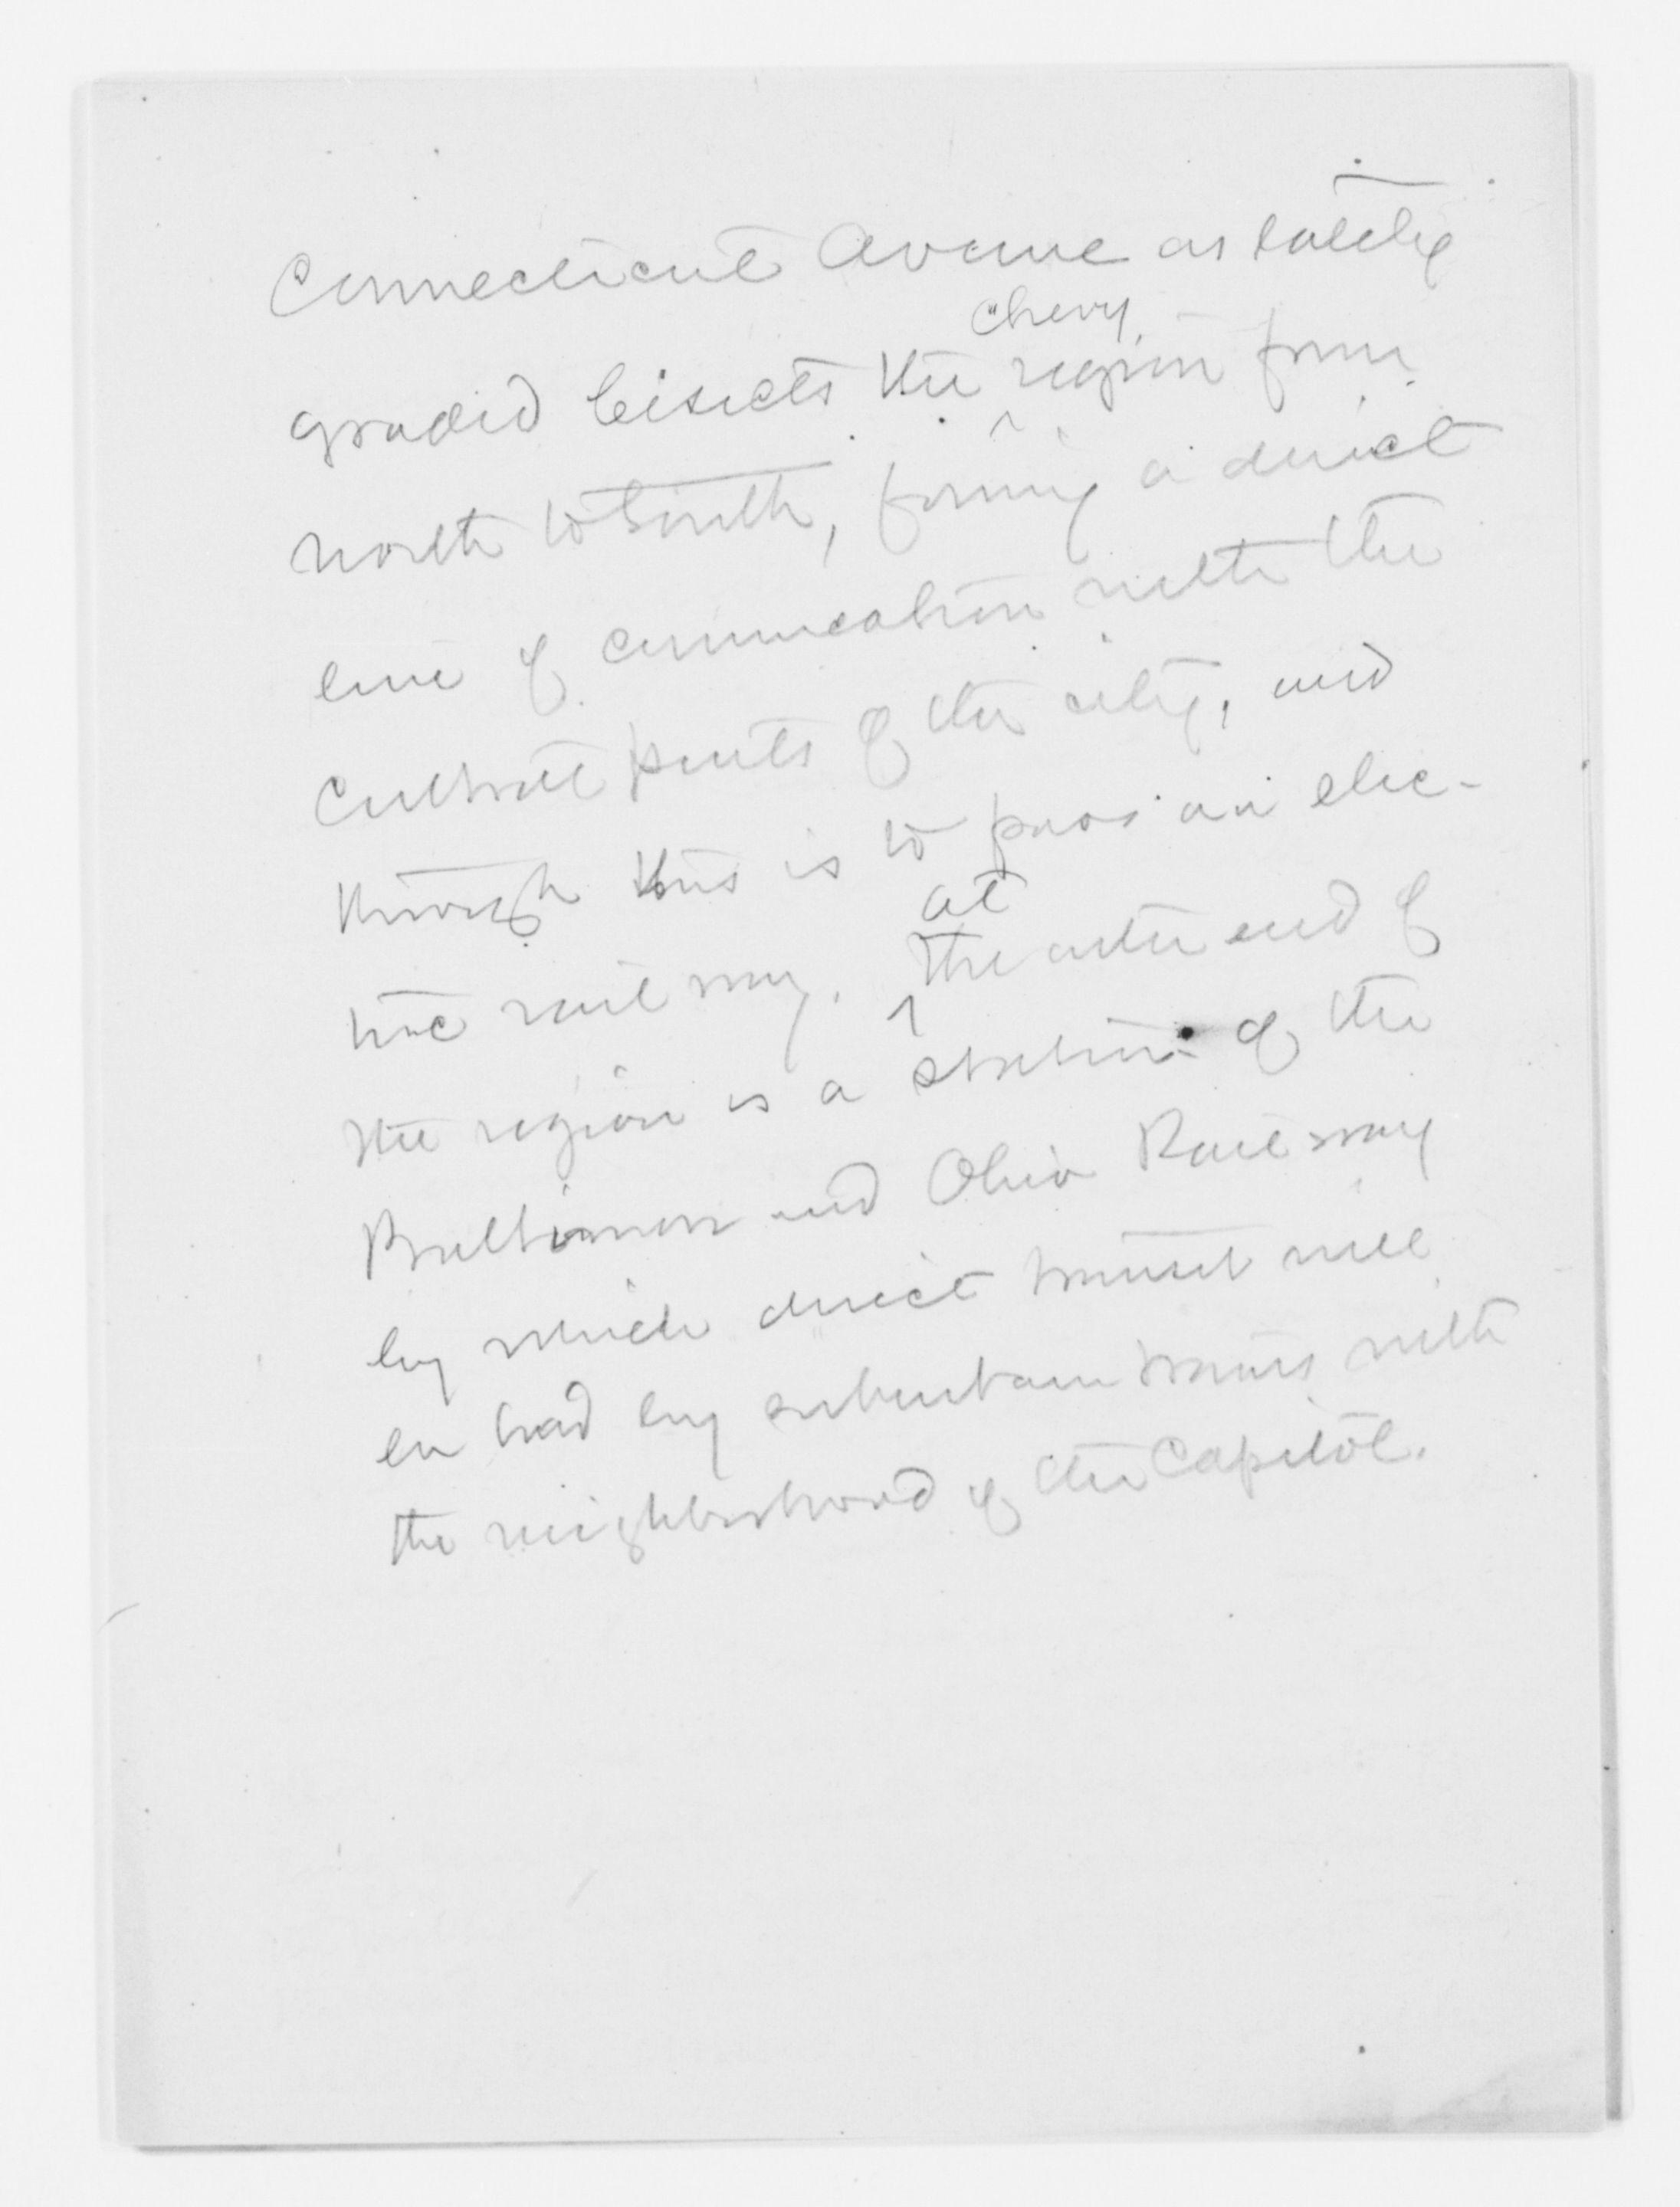 Connecticut Avenue as lately
Chevy
graded bisects the region from
north to South, forming a direct
line of communication with the
central parts of the city, and
through this is to pass an elec-
at
tric railway. The outer end of
the region is a station of the
Baltimore and Ohio Railway
by which direct transit will
be had by suburban trains with
the neighborhood of the Capitol.